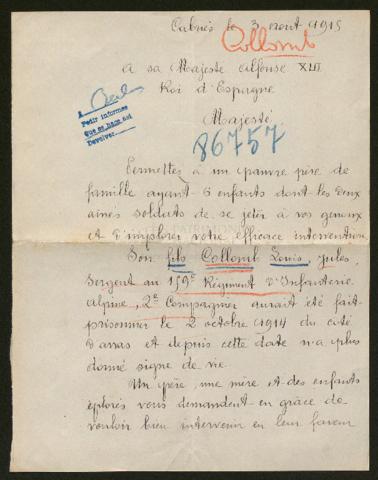 Cabriès le 3 aout 1915
Collomb
A sa Majeste Alfonse XIII
Roi d'Espagne
A
Pedir informes
Que se haga así
Devolver
Majesté
86757
Permettez à un pauvre père de
famille ayant 6 enfants dont les deux
ainés soldats de se jeter à vos genoux
et d'implorer votre efficace intervention
Son fils Collomb Louis, jules,
Sergent au 159e Régiment d'Infanterie
Alpine, 2e Compagnie aurait été fait
prisonnier le 2 octobre 1914 du coté
d'arras et depuis cette date n'a plus
donné signe de vie.
Un père, une mère et des enfants
éplorés vous demandent en grâce de
vouloir bien intervenir en leur faveur